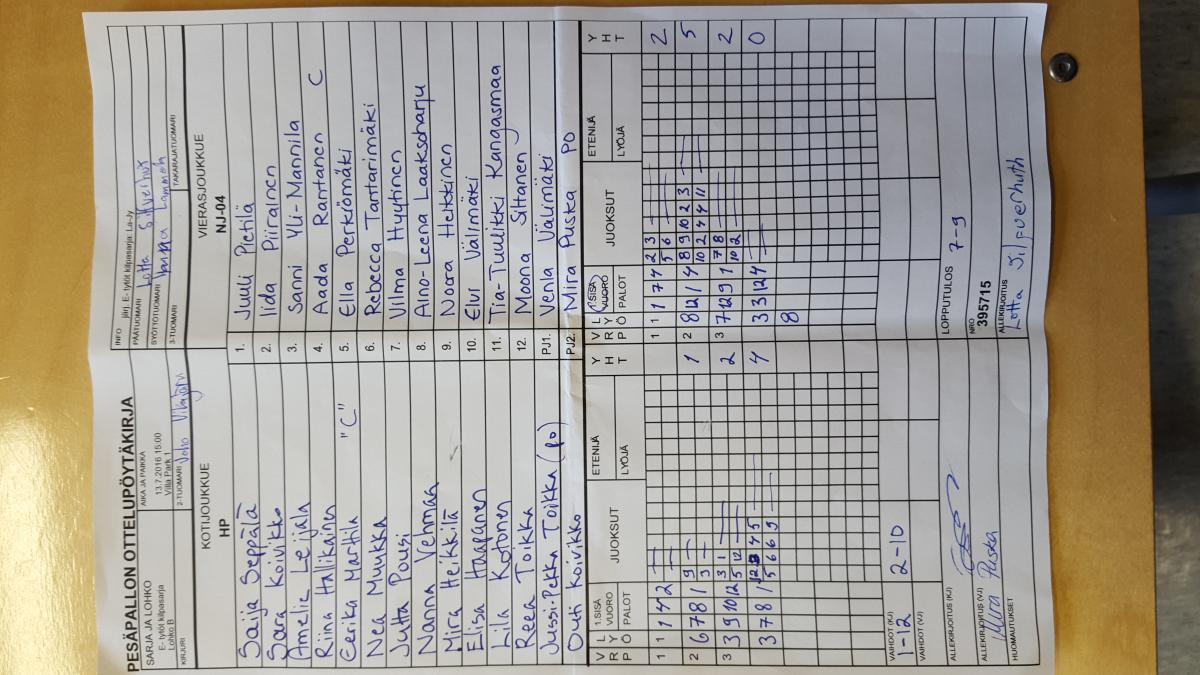 PESÄPALLON OTTELUPÖYTÄKIRJA
SARJA JA LOHKO
E- tytöt kilpasarja
Lohko B
AIKA JA PAIKKA
13.7.2016 15:00
Villa Park 1
INFO järj. E- tytöt kilpasarja: La-Jy
PÄÄTUOMARI Lotta
SYÖTTÖTUOMARI
KIRJURI
2-TUOMARI
3-TUOMARI
TAKARAJATUOMARI
KOTIJOUKKUE
HP
VIERASJOUKKUE
NJ-04
Saija Seppälä 1. Juuli Pietilä
Sara Koivikko 2. Iida Piirainen
Amelie Leijala 3. Sanni Yli-Mannila
Riina Hallikainen 4. Aada Rantanen C
Eerika Marttila "C" 5. Ella Perkiömäki
Nea Muukka 6. Rebecca Tantarimäki
Jutta Pousi 7. Vilma Hyytinen
Nanna Vehmaa 8. Aino-Leena Laaksoharju
Mira Heikkilä 9. Noora Heikkinen
Elisa Haapanen 10. Elvi Välimäki
Lila Kotonen 11. Tia-Tuulikki Kangasmaa
Reea Toikka 12. Moona Siltanen
Jussi-Pekka Toikka (po) PJ1. Venla Välimäki
Outi Koivikko PJ2. Mira Puska PO
VRP LYÖ 1.SISÄ VUORO PALOT JUOKSUT ETENIJÄ LYÖJÄ YHT
VRP LYÖ 1.SISÄ VUORO PALOT JUOKSUT ETENIJÄ LYÖJÄ YHT
1 1 1 4 2
1 1 1 7 4 2 3 2
5 6
2 6 7 8 1 9 1
3
2 8 12 1 4 8 9 10 2 3 5
10 2 4 4 11
3 3 9 10 12 3 1 2
5 12
3 7 12 9 1 7 8 2
10 2
3 7 8 1 4 5 4
5 6 6 9
3 3 12 4 0
8
VAIHDOT (KJ)
1-12 2-10
VAIHDOT (VJ)
LOPPUTULOS 7-9
ALLEKIRJOITUS (KJ)
NRO
395715
ALLEKIRJOITUS (VJ)
Miira Puska
ALLEKIRJOITUS
Lotta Silfverhuth
HUOMAUTUKSET